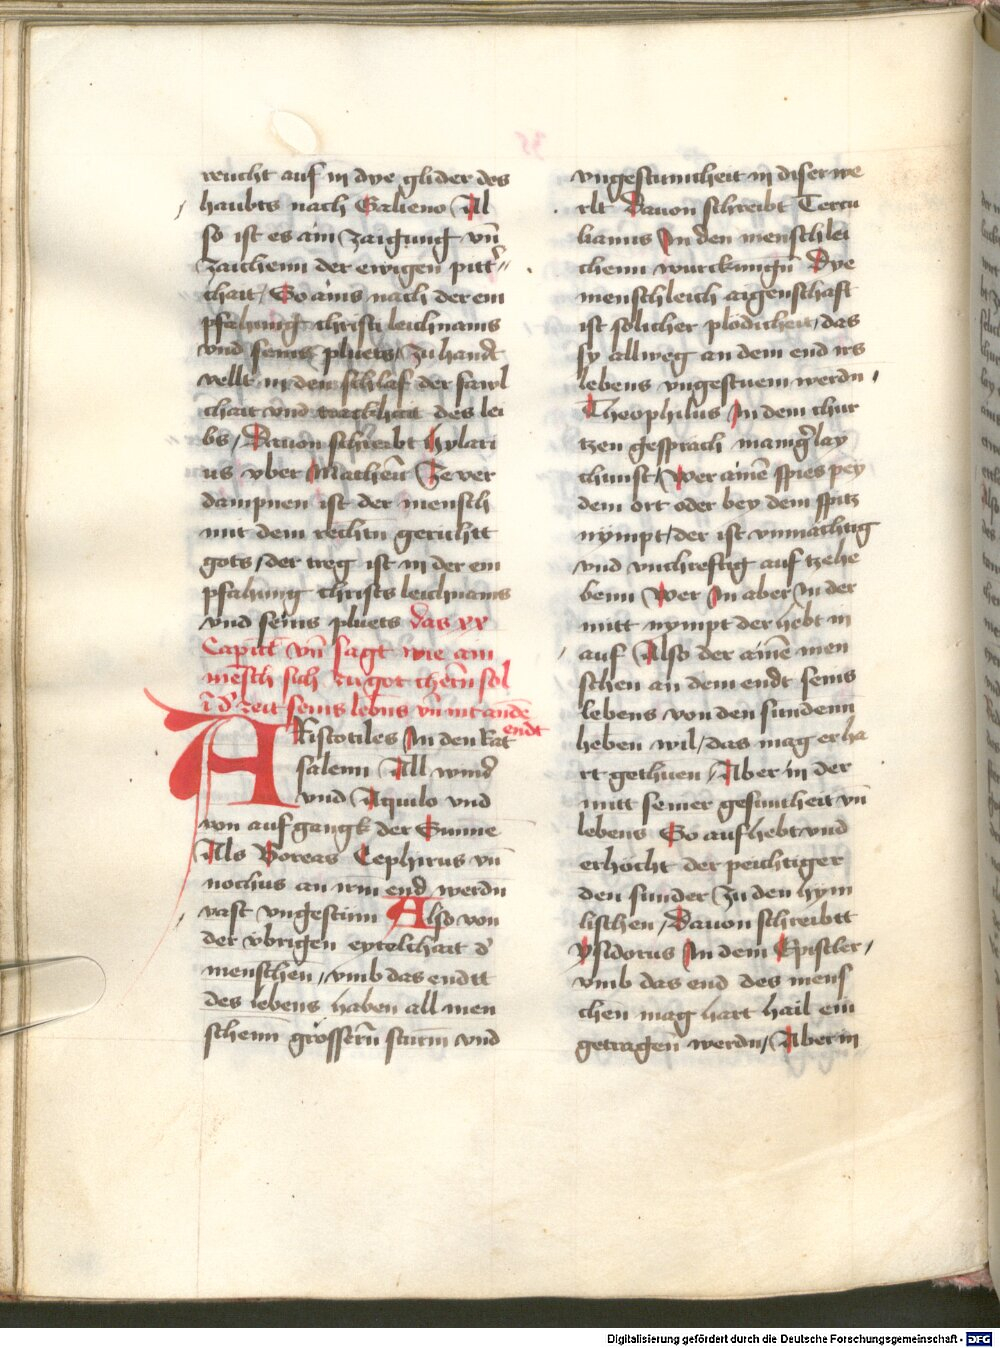 reucht auf in dye glider des
haubts nach Galieno Al
so ist es ain zaigung vn̄
zaichenn der ewigen pitt̉
chait / So ains nach der em
pfahung christi leichnams
vnd seins pluets / zu handt
vellt in den schlaf der fawl
chait vnd trackhait des lei
bs / Dauon schreibt hylari
us vber Matheū Ze ver
dampnen ist der mensch
mit dem rechtn̄ gerichtt
gots / der treg ist in der em
pfahung christs leichnams
vnd seins pluets das xx
Capitl̄ vn̄ sagt wie ain
mēsch sich zu got chern̄ sol
ī d̉ zeit seins lebn̄s vn̄ nit an dē
endt
ARistotiles In den Rat
salenn All wind̉
vnd Aquilo vnd
von aufgangk der Sunne
Als Boreas Cephirus vn̄
nochus an irm end werdn̄
vast vngestüm Also von
der vbrigen eytelchait d̉
menschen / vmb das endtt
des lebens haben all men
schenn grössern̄ sturm vnd
vngestumicheit in diser we
rlt Dauon schreibt Tercu
lianus In den menschlei
chenn wurckungn̄ Dye
menschleich aigenschaft
ist sölicher plödicheit / das
sy allweg an dem end irs
lebens vngestuem werdn̄
Theophilus In dem chur
tzen gesprach manig̉lay
chunst / Wer ainē spies pey
dem ort oder bey dem spitz
nympt / der ist vnmachtig
vnd vnchreftig auf tzehe
benn Wer In aber In der
mitt nympt der hebt in
auf Also der ainē men
schen an dem endt seins
lebens von den sundenn
heben wil / das mag er ha
rt gethuen / Aber in der
mitt seiner gesuntheit vn̄
lebens So aufhebt vnd
erhöcht der peichtiger
den sunder zu den hym
lischen / Dauon schreibtt
Ysidorus In dem Epistler /
vmb das end des mens
chen mag hart hail ein
getragen werdn̄ / Aber in
Digitalisierung gefördert durch die Deutsche Forschungsgemeinschaft - DFG